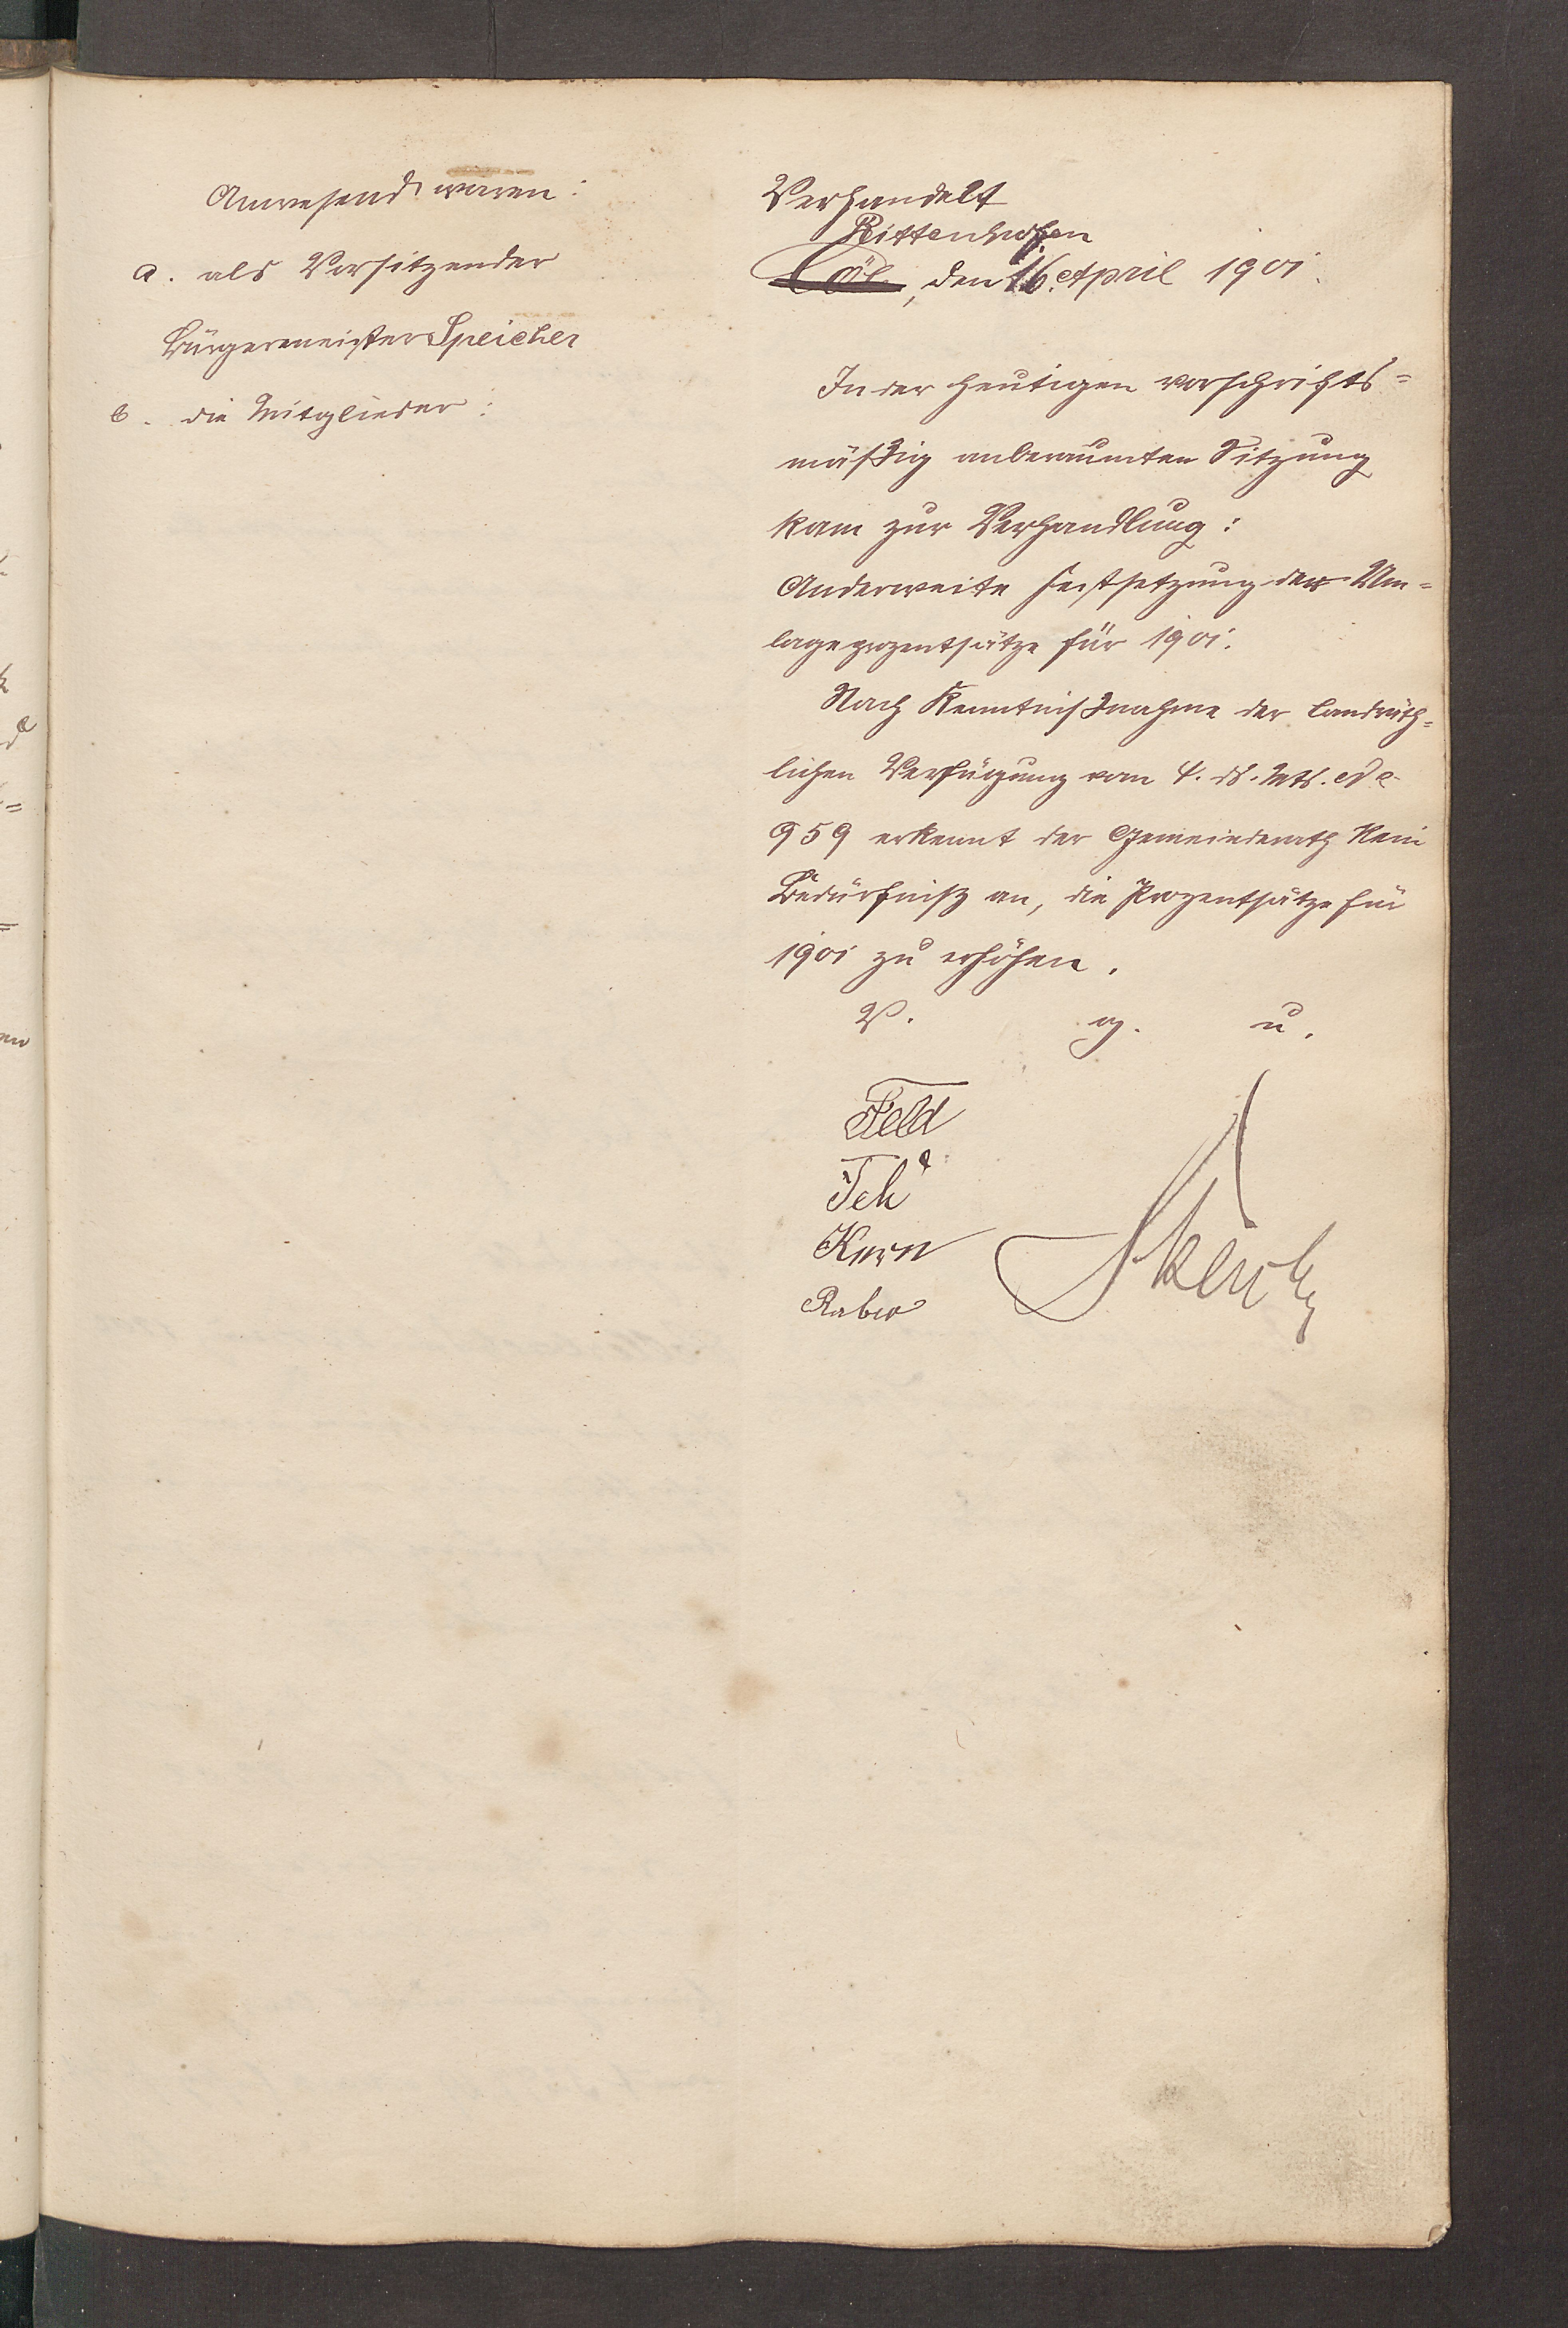 Anwesend waren:
a. als Vorsitzender
Bürgermeister Speicher
b. die Mitglieder:
Verhandelt
Rittenhofen
Cöl., den 16. April 1901.
In der heutigen vorschrifts=
mäßig anberaumten Sitzung
kam zur Verhandlung:
Anderweite Festsetzung der Um=
lageprozentsätze für 1901.
Nach Kenntnißnahme der landräth=
lichen Verfügung vom 4. ds. Mts.
959 erkennt der Gemeinderath kein
Bedürfniß an, die Prozentsätze für
1901 zu erhöhen.
V. g. u.
Feld
Kern